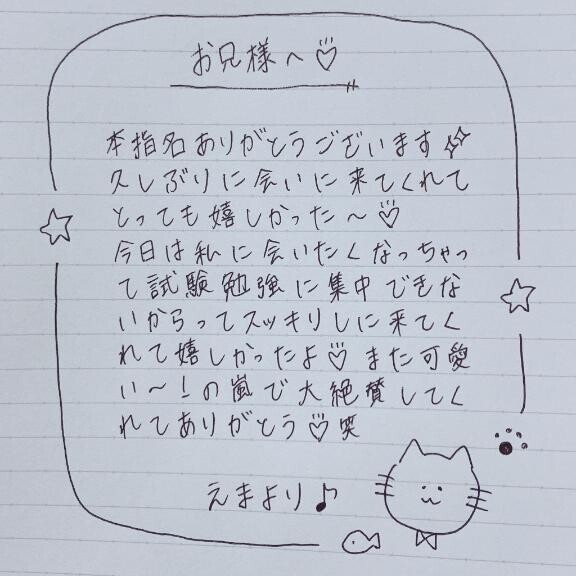 お兄様へ♡
本指名ありがとうございます✨
久しぶりに会いに来てくれて
とっても嬉しかった〜♡
今日は私に会いたくなっちゃっ
て試験勉強に集中できな
いからってスッキリしに来てく
れて嬉しかったよ♡また可愛
い〜！の嵐で大絶賛してく
れてありがとう♡笑
えまより♪